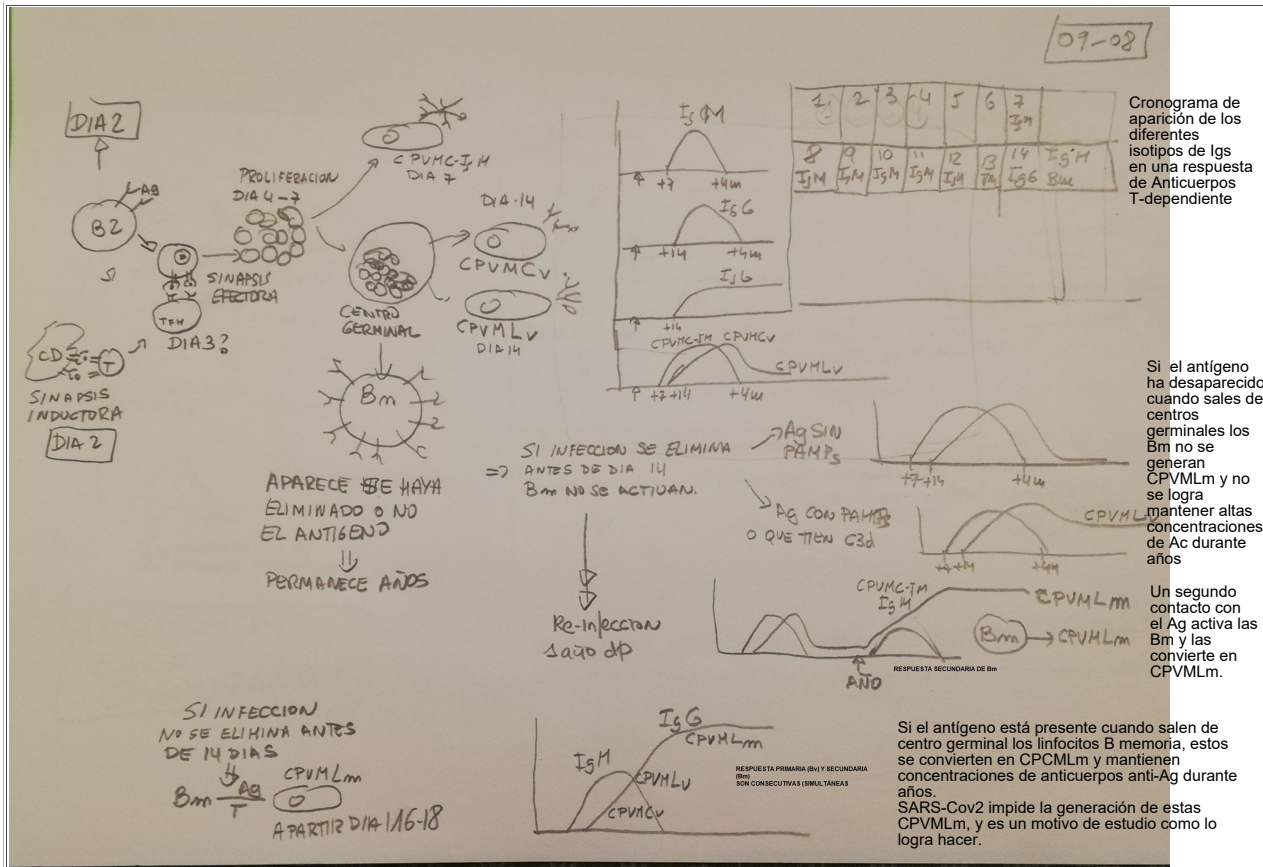 09-08
DIA 2
B2
Ag
SI
PROLIFERACION
DIA 4-7
SINAPSIS
EFECTORA
TFH
DIA3?
CD
T
SINAPSIS
INDUCTORA
DIA 2
CPVMC-IgM
DIA 7
CENTRO
GERMINAL
DIA-14
CPVMCv
CPVMLv
DIA 14
Bm
APARECE SE HAYA
ELIMINADO O NO
EL ANTIGENO
PERMANECE AÑOS
IgM
+7
+4m
IgG
+14
+4m
IgG
+14
CPVMC-IM
CPVMCv
CPVMLv
+7 +14
+4m
1 2 3 4 5 6 7
IgM
8 9 10 11 12 13 14
IgM IgM IgM IgM IgM IgG IgM
Bm
Cronograma de
aparición de los
diferentes
isotipos de Igs
en una respuesta
de Anticuerpos
T-dependiente
=> SI INFECCION SE ELIMINA
ANTES DE DIA 14
Bm NO SE ACTIVAN.
Ag SIN
PAMPs
+7 +14
+4m
Ag CON PAMPs
O QUE TIEN C3d
CPVMLv
+7 +14
+4m
Si el antígeno
ha desaparecido
cuando sales de
centros
germinales los
Bm no se
generan
CPVMLm y no
se logra
mantener altas
concentraciones
de Ac durante
años
Re-infeccion
1 año dp
CPVMC-IM
IgM
CPVMLm
Bm → CPVMLm
RESPUESTA SECUNDARIA DE Bm
AÑO
Un segundo
contacto con
el Ag activa las
Bm y las
convierte en
CPVMLm.
SI INFECCION
NO SE ELIMINA ANTES
DE 14 DIAS
Bm
Ag
T
CPVMLm
A PARTIR DIA 16-18
IgM
IgG
CPVMLm
CPVMLv
CPVMCv
RESPUESTA PRIMARIA (Bv) Y SECUNDARIA
(Bm)
SON CONSECUTIVAS (SIMULTÁNEAS
Si el antígeno está presente cuando salen de
centro germinal los linfocitos B memoria, estos
se convierten en CPCMLm y mantienen
concentraciones de anticuerpos anti-Ag durante
años.
SARS-Cov2 impide la generación de estas
CPVMLm, y es un motivo de estudio como lo
logra hacer.